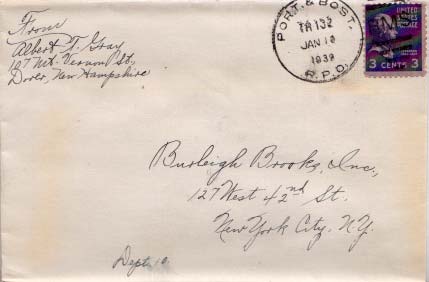 From
Albert T. Gray
127 Mt. Vernon St.,
Dover, New Hampshire
PORT. & BOST.
TR 132
JAN 10
1939
R.P.O.
UNITED
STATES
POSTAGE
3 CENTS 3
Burleigh Brooks, Inc.,
127 West 42nd St.
New York City, N.Y.
Dept.